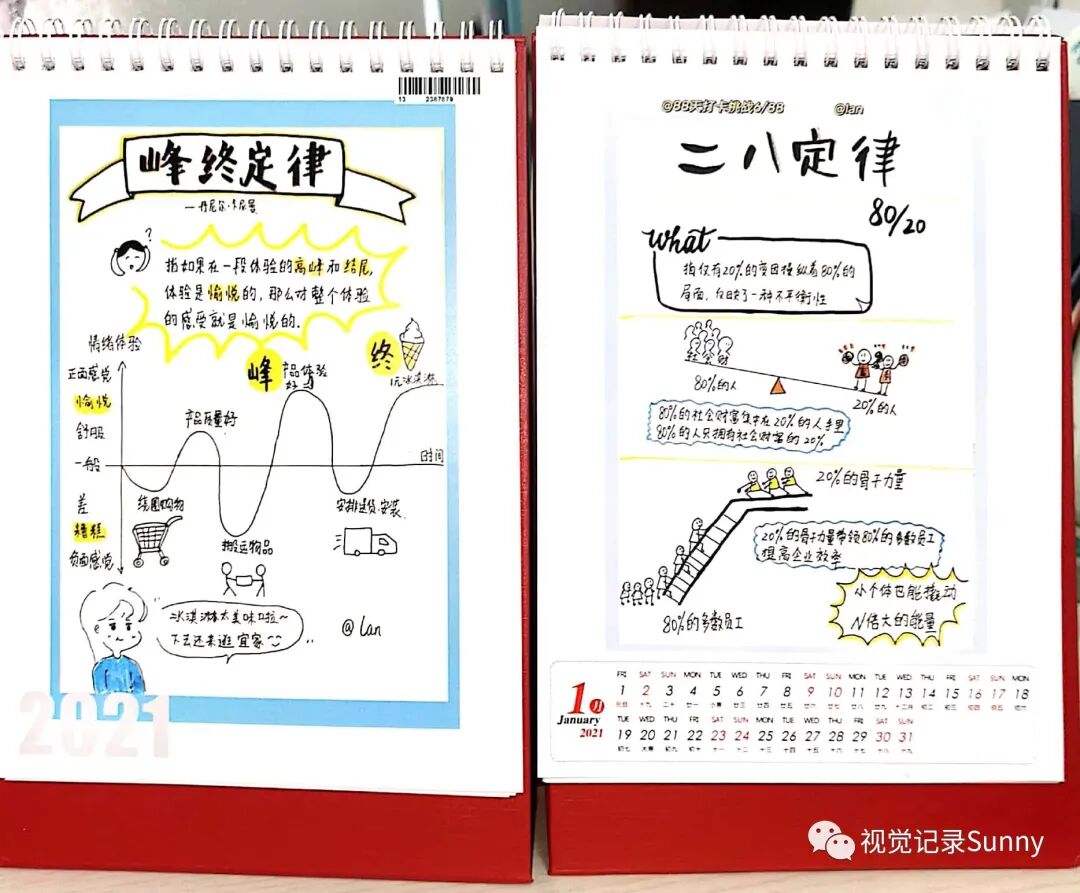 13 2387879
峰终定律
—丹尼尔·卡尼曼
?
指如果在一段体验的高峰和结尾,
体验是愉悦的，那么对整个体验
的感受就是愉悦的.
情绪体验
正面感觉
愉悦
舒服
一般
差
糟糕
负面感觉
峰
产品体验
好
终
1元冰淇淋
产品质量好
时间
绕圈购物
搬运物品
安排送货.安装
冰淇淋太美味啦~
下次还来逛宜家
@lan
2021
@88天打卡挑战6/88 @lan
二八定律
80/20
what
指仅有20%的变因操纵着80%的
局面，反映了一种不平衡性
社会财
80%的人
20%的人
80%的社会财富集中在20%的人手里
80%的人只拥有社会财富的20%
20%的骨干力量
20%的骨干力量带领80%的多数员工
提高企业效率
80%的多数员工
小个体也能撬动
N倍大的能量
1月
January
2021
FRI SAT SUN MON TUE WED THU FRI SAT SUN MON TUE WED THU FRI SAT SUN MON
1 2 3 4 5 6 7 8 9 10 11 12 13 14 15 16 17 18
元旦 十九 二十 廿一 小寒 廿三 廿四 廿五 廿六 廿七 廿八 廿九 十二月 初二 初三 初四 初五 初六
TUE WED THU FRI SAT SUN MON TUE WED THU FRI SAT SUN
19 20 21 22 23 24 25 26 27 28 29 30 31
初七 大寒 初九 初十 十一 十二 十三 十四 十五 十六 十七 十八 十九
视觉记录Sunny